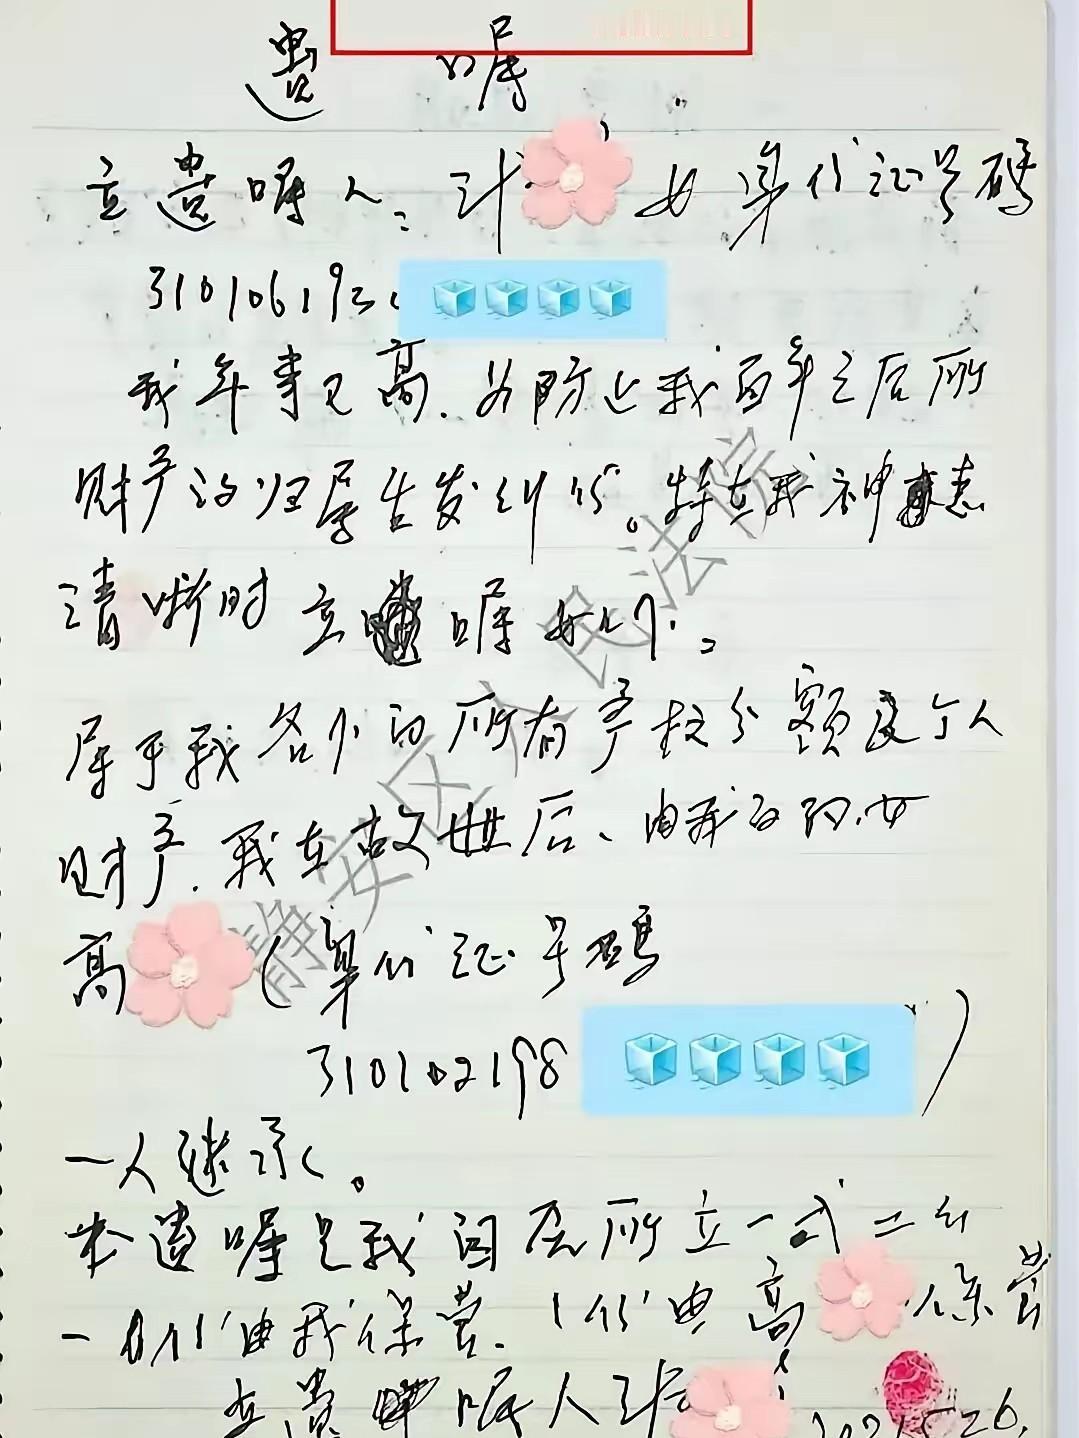 遗嘱
立遗嘱人：计 女 身份证号码
310106193
我年事已高、为防止我百年之后所
财产的归属生发纠纷。特在我神志
清晰时立嘱如下：
属于我名下的所有产权份额及个人
财产、我在故世后、由我的孙女
高 （身份证号码
310102198 ）
一人继承。
本遗嘱是我自愿所立一式二份
一份由我保管、1份由高 保管
立遗嘱人计 2021.5.26.
静安区人民法院